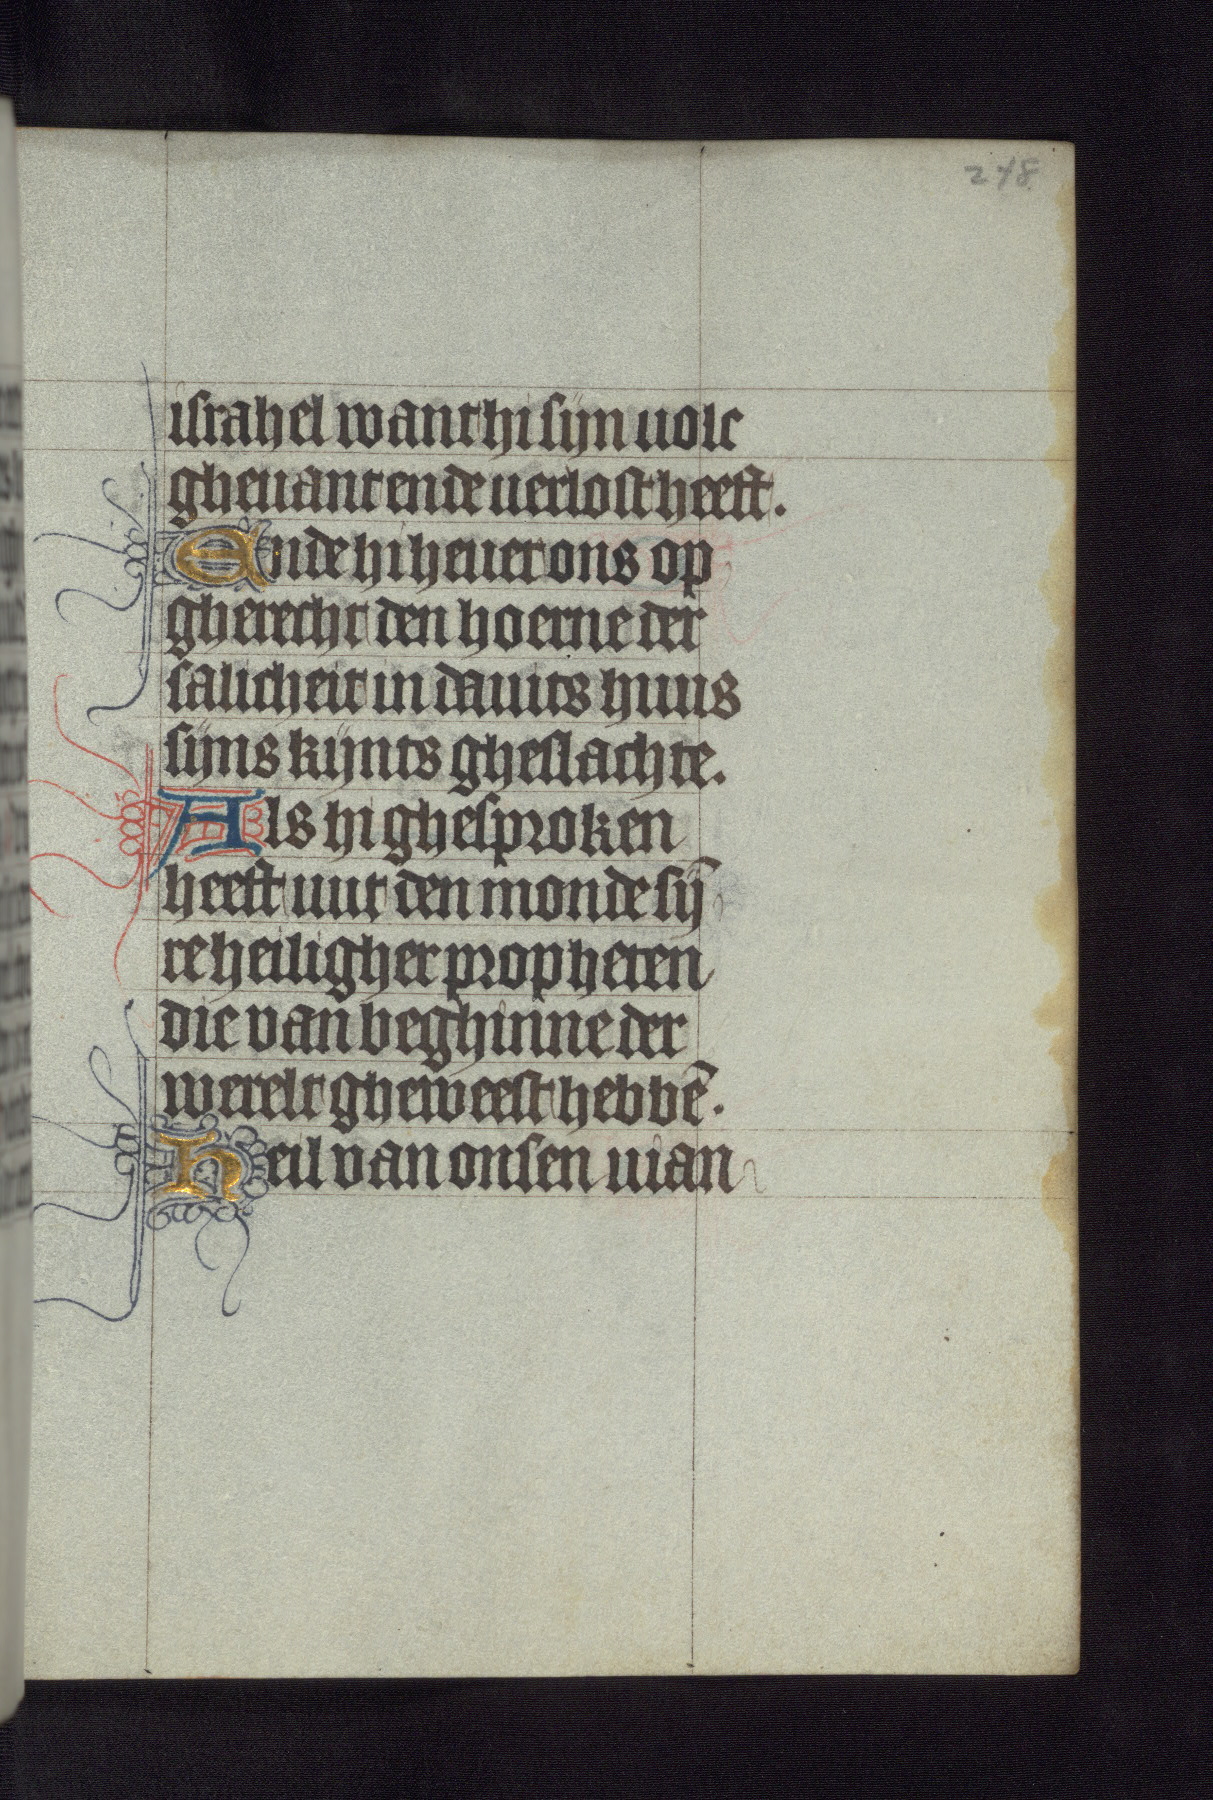 278
israhel want hi sijn uolc
gheuant ende uerlost heeft.
Ende hi heuet ons op
gherecht den hoerne der
salicheit in dauits huus
sijns kijnts gheslachte.
Als hi ghesproken
heeft uut den monde sij̄
re heiligher propheten
die van beghinne der
werelt gheweest hebbē.
Heil van onsen uian